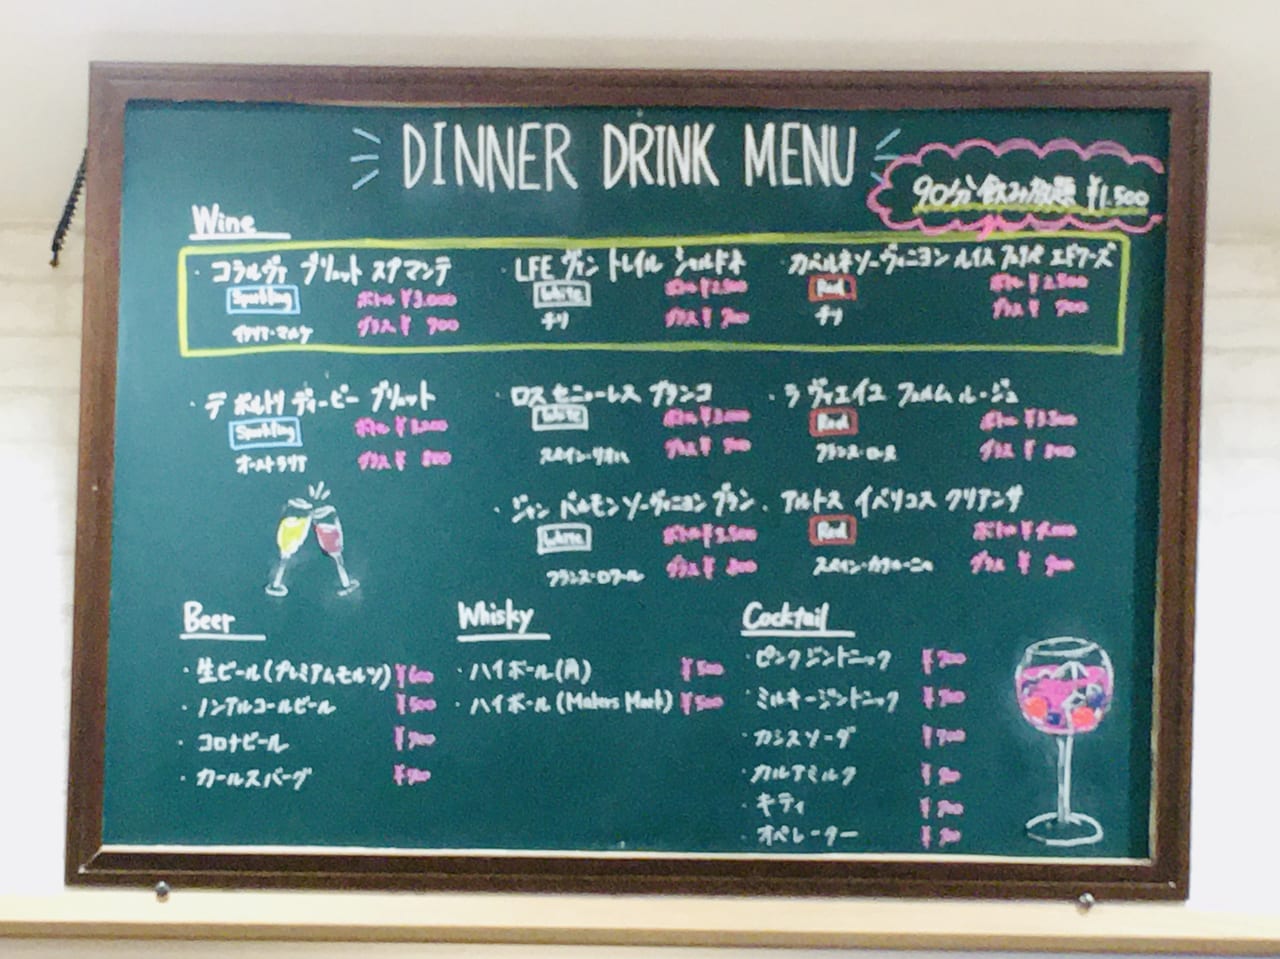 DINNER DRINK MENU
90分 飲み放題 ¥1,500
Wine
・コラルヴァ ブリュット スプマンテ
Sparkling
ボトル ¥3,000
イタリア・マルケ
グラス ¥ 700
・LFE ヴィン トレイル シャルドネ
White
ボトル ¥2,500
チリ
グラス ¥ 700
・カベルネソーヴィニヨン ルイス フェリペ エドワーズ
Red
ボトル ¥2,500
チリ
グラス ¥ 700
・デ ボルトリ ディービー ブリュット
Sparkling
ボトル
オーストラリア
グラス ¥ 800
・ロス セニョーレス ブランコ
White
ボトル ¥3,000
スペイン・リオハ
グラス ¥
・ラ ヴィエイユ フェルム ルージュ
Red
ボトル ¥3,500
フランス・ローヌ
グラス ¥ 800
・ジャン バルモン ソーヴィニヨン ブラン
White
ボトル ¥3,500
フランス・ロワール
グラス ¥ 800
・アルトス イベリコス クリアンサ
Red
ボトル ¥4,000
スペイン・カタルーニャ
グラス ¥ 900
Beer
・生ビール(プレミアムモルツ) ¥600
・ノンアルコールビール ¥500
・コロナビール ¥700
・カールスバーグ
Whisky
・ハイボール(角) ¥500
・ハイボール(Makers Mark) ¥500
Cocktail
・ピンクジントニック ¥700
・ミルキージントニック ¥700
・カシスソーダ ¥700
・カルアミルク ¥700
・キティ ¥700
・オペレーター ¥700